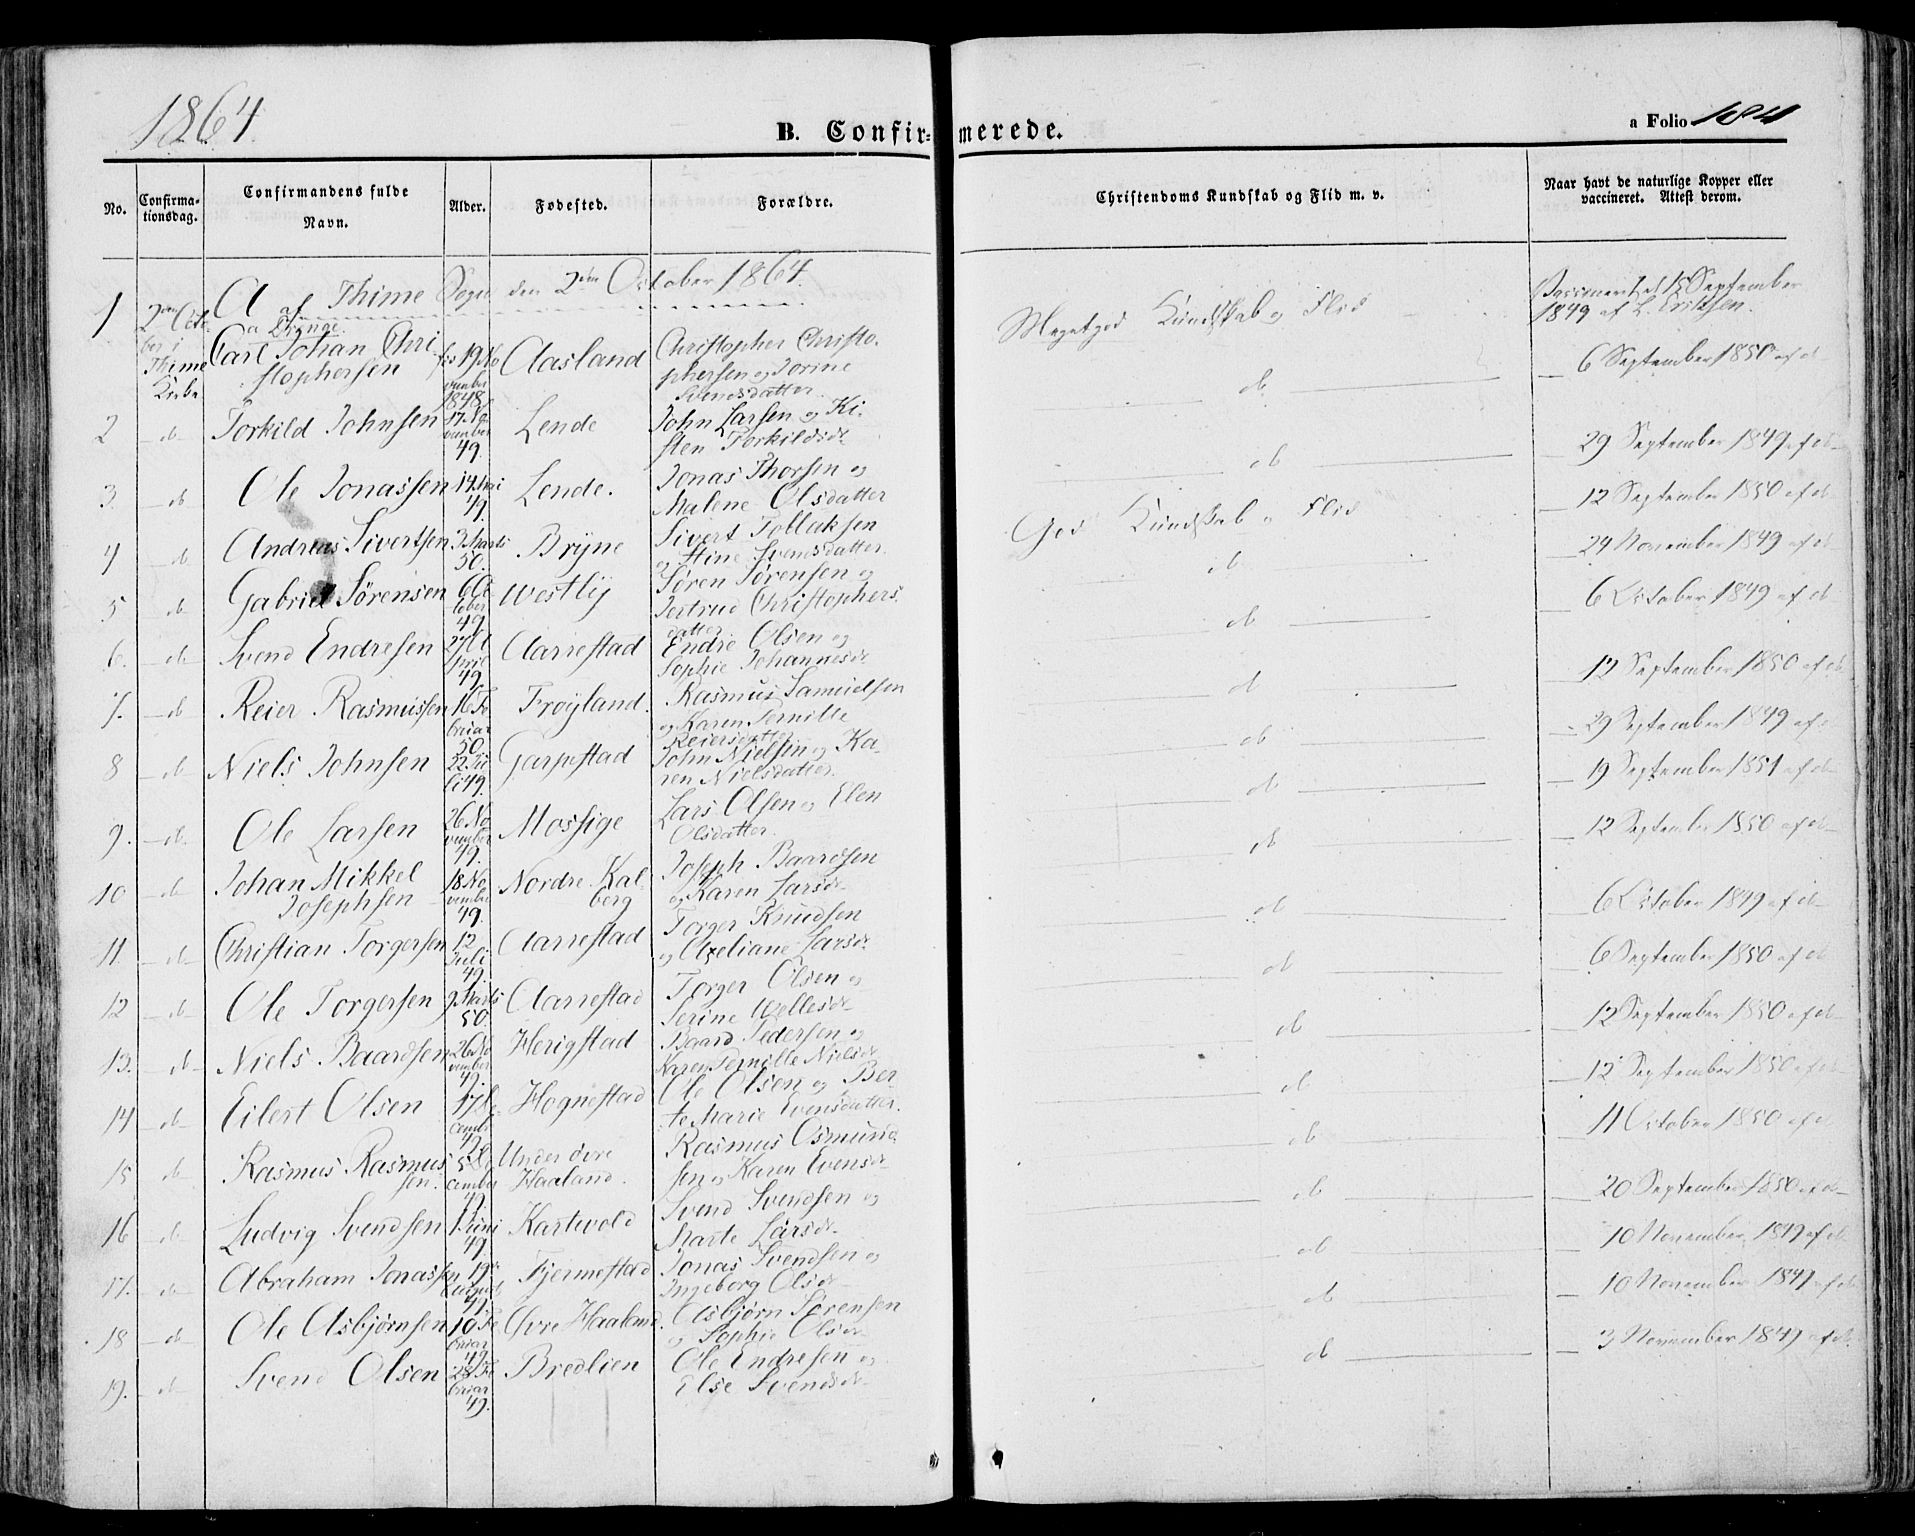 1864
B. Confirmerede.
a Folio 184
No.
Confirmationsdag.
Confirmandens fulde Navn.
Alder.
Fødested.
Forældre.
Christendoms Kundskab og Flid m. v.
Naar havt de naturlige Kopper eller vaccineret. Attest derom.
A af Thime Sogn den 2den October 1864.
a Drenge.
1 2den October i Thime Kirke Carl Johan Christophersen 19 November 1848 Aasland Christopher Christophersen og Jorine Svendsdatter Megetgod Kundskab og Flid Vaccineret d 15 September 1849 af L. Eriksen.
2 do Torkild Johnsen 17 November 49. Lende John Larsen og Kisten Torkildsdr do 6 September 1850 af do
3. do Ole Jonassen 14 Mai 49. Lende. Jonas Thorsen og Malene Olsdatter do 29 September 1849 af do
4 do Andreas Sivertsen 3 Marts 50. Bryne Sivert Tollaksen og Stine Svensdatter. God Kundskab og Flid 12 September 1850 af do
5 do Gabriel Sørensen 6 October 49 Westly Søren Sørensen og Jertrud Christophersdatter do 24 November 1849 af do
6. do Svend Endresen 27 April 49 Aarrestad Endre Olsen og Sophie Johannesdr do 6 October 1849 af do
7. do Reier Rasmussen 16 Februar 50 Frøyland. Rasmus Samuelsen og Karen Pernille Reiersdatter do 12 September 1850 af do
8 do Niels Johnsen 22 Juli 49. Garpestad John Nielsen og Karen Nielsdatter. do 29 September 1849 af do
9. do Ole Larsen 26 November 49. Mossige Lars Olsen og Elen Olsdatter. do 19 September 1851 af do
10 do Johan Mikkel Josephsen 18 November 49. Nordre Kalberg Joseph Baardsen og Karen Larsdr do 12 September 1850 af do
11. do Christian Torgersen 12 Juli 49. Aarrestad Torger Knudsen og Axeliane Larsdr do 6 October 1849 af do
12 do Ole Torgersen 9 Marts 50. Aarrestad Torger Olsen og Serine do 6 September 1850 af do
13. do Niels Baardsen 26 November 49. Herigstad Baard Pedersen og Karen Pernille Nielsdr do 12 September 1850 af do
14 do Eilert Olsen 17 December 49 Hognestad Ole Olsen og Berte Marie Evensdatter. do 12 September 1850 af do
15 do Rasmus Rasmussen. 5 December 49 Under øvre Haaland. Rasmus Osmundsen og Karen Evensdr do 11 October 1850 af do
16 do Ludvig Svendsen 1 Juni 49. Kartvold Svend Svendsen og Marte Larsdr. do 20 September 1850 af do
17. do Abraham Jonassen 19 August 49. Fjermestad Jonas Svendsen og Ingeborg Olsdr do 10 November 1849 af do
18 do Ole Asbjørnsen 10 Februar 49 Øvre Haaland. Asbjørn Sørensen og Sophie Olsdr do 10 November 1849 af do
19. do Svend Olsen 28 Februar 49. Bredlien Ole Endresen og Else Svendsdr do 3 November 1849 af do